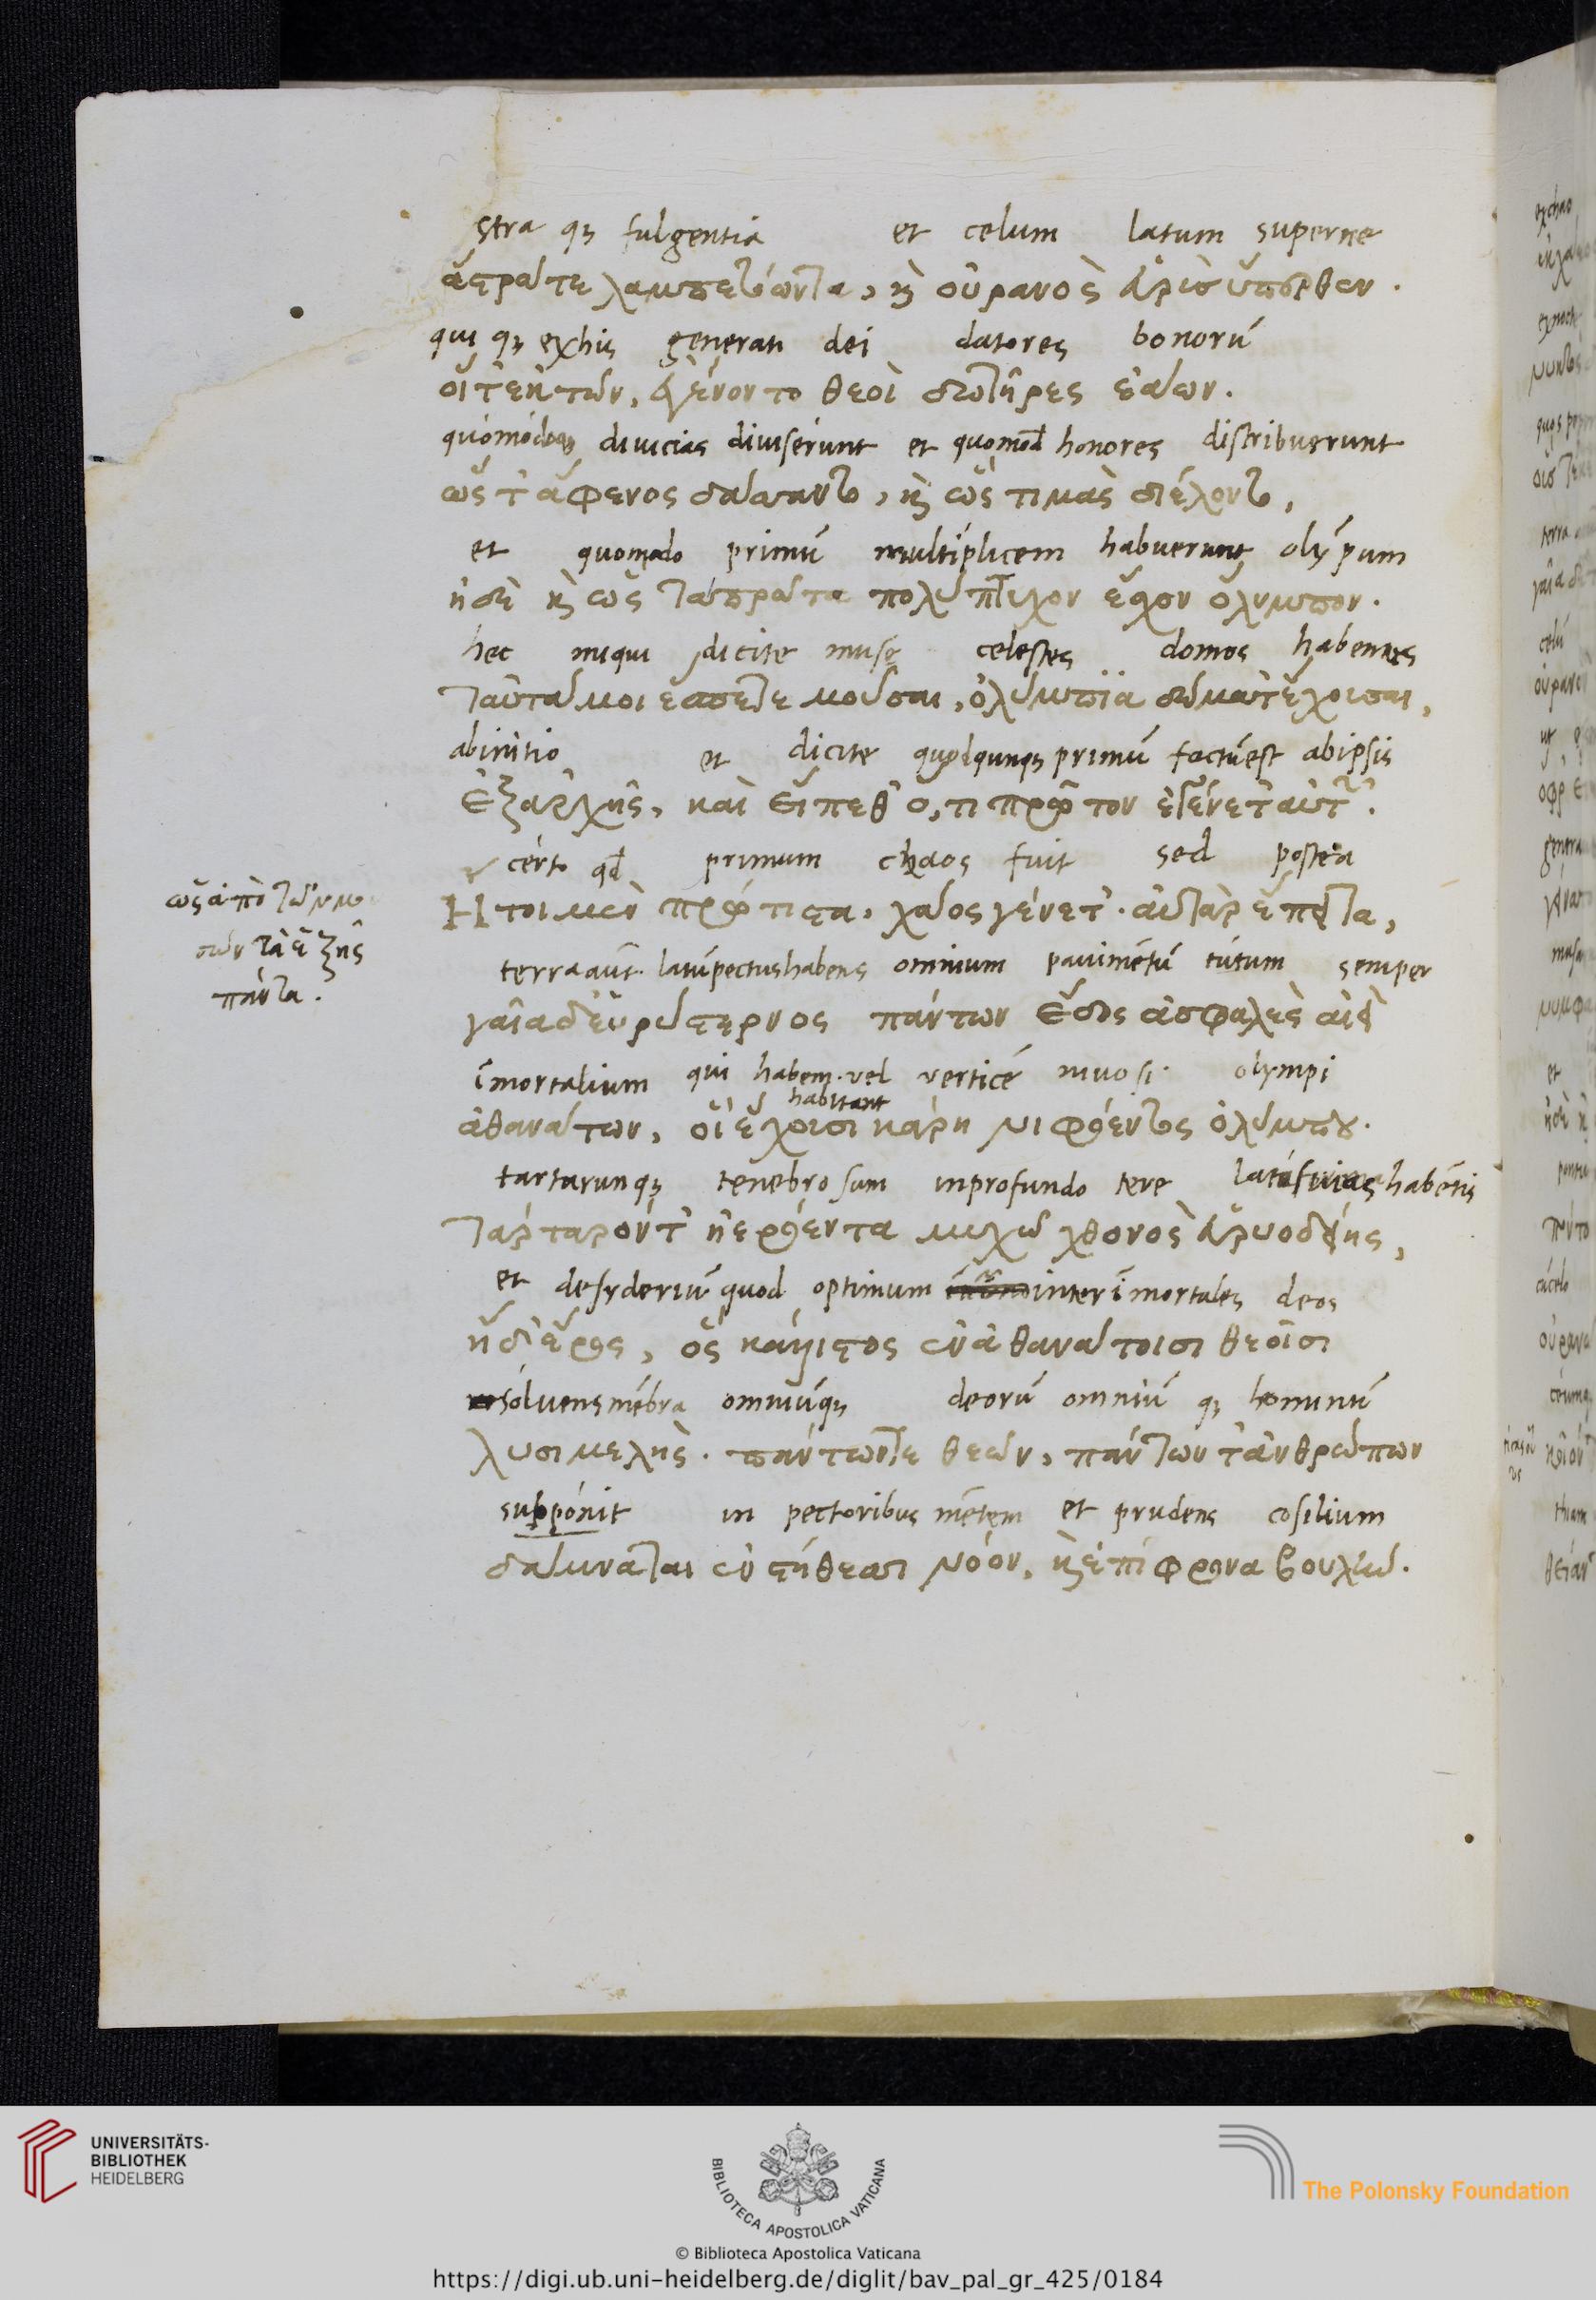 stra qꝫ fulgentia et celum latum superne
ἄστρα τε λαμπετόωντα, καὶ οὐρανὸς εὐρὺς ὕπερθεν.
qui qꝫ exhis generati dei datores bonorū
οἵ τ' ἐκ τῶν ἐγένοντο θεοὶ δωτῆρες ἐάων.
quomodoqꝫ divicias diviserunt et quomod honores distribuerunt
ὥς τ' ἄφενος δάσσαντο, καὶ ὡς τιμὰς διέλοντο,
et quomodo primū multiplicem habuerunt olympum
ἠδὲ καὶ ὡς ταπρῶτα πολύπτυχον ἔσχον ὄλυμπον.
hec miqui dicite muse celestes domos habentes
ταῦτά μοι ἔσπετε μοῦσαι, ὀλύμπϊα δώματ' ἔχουσαι,
abinitio et dicite quodqunqꝫ primū factūest abipsis
ἐξαρχῆς, καὶ εἴπεθ' ὅ,τι πρῶτον ἐγένετ' αὐτῶν.
certo qd primum chaos fuit sed postea
Ητοι μὲν πρώτιστα, χάος γένετ'. αὐτὰρ ἔπειτα,
ὡς ἀπὸ τῶν μου
σῶν τὰ ἑξῆς
πάντα.
terra aūt. latūpectushabens omnium pavimētū tutum semper
γαῖα δ' εὐρύστερνος πάντων ἕδος ἀσφαλὲς αἰεὶ
īmortalium qui habem. vel verticē nivosi olympi
habitant
ἀθανάτων, οἳ ἔχουσι κάρη νιφόεντος ὀλύμπου.
tartarunqꝫ tenebrosum inprofundo tere latas habētis
τάρταρόν τ' ἠερόεντα μυχῷ χθονὸς εὐρυοδείης,
et desyderiū quod optimum inter īmortales deos
ἠδ' ἔρος, ὃς κάλλιστος ἐν ἀθανάτοισι θεοῖσι
solvensmēbra omniūqꝫ deorū omniū qꝫ hominū
λυσιμελὴς. πάντων τε θεῶν, πάντων τ' ἀνθρώπων
supponit in pectoribus mētem et prudens cosilium
δάμναται ἐν στήθεσσι νόον, καὶ ἐπίφρονα βουλήν.
UNIVERSITÄTS-
BIBLIOTHEK
HEIDELBERG
BIBLIOTECA APOSTOLICA VATICANA
The Polonsky Foundation
© Biblioteca Apostolica Vaticana
https://digi.ub.uni-heidelberg.de/diglit/bav_pal_gr_425/0184